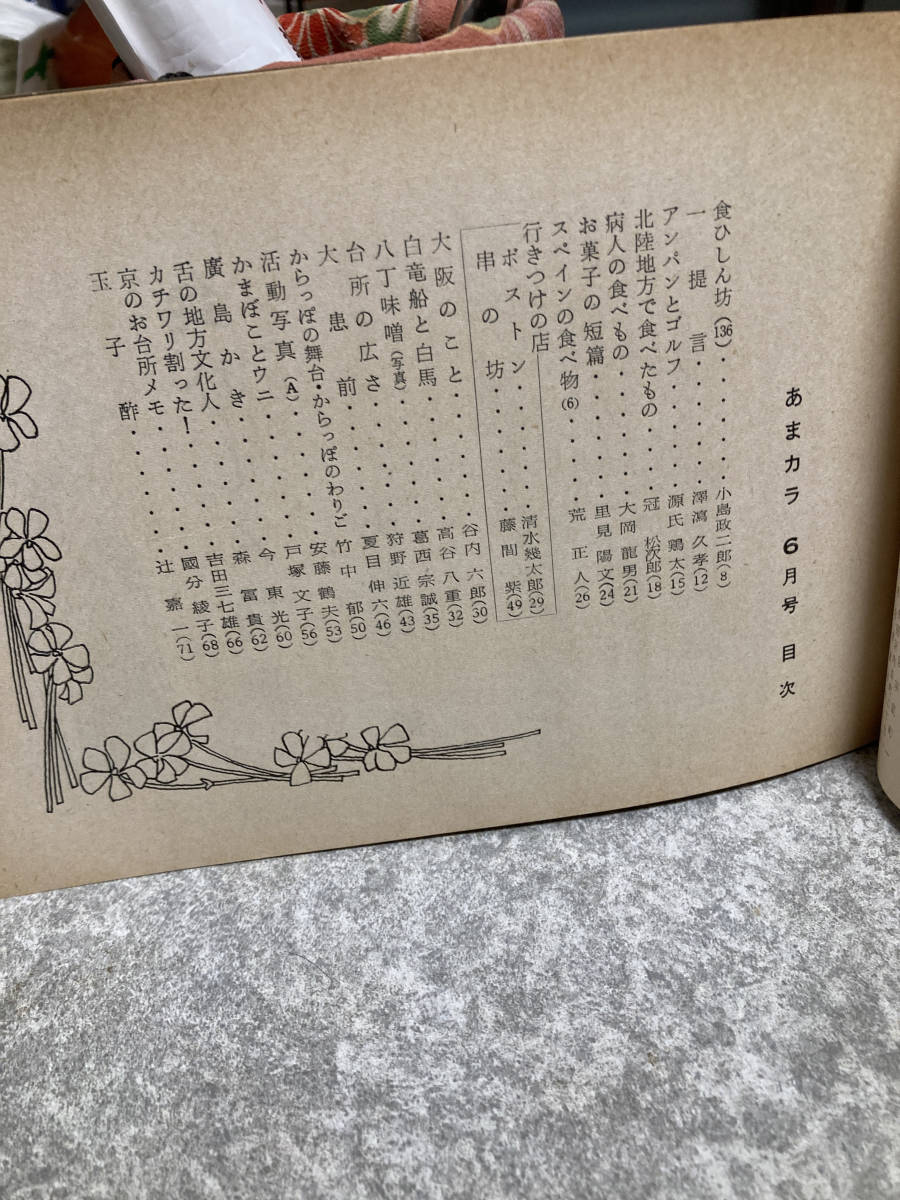 あまカラ 6月号 目次
食ひしん坊(136)・・・・・・小島政二郎(8)
一提言・・・・・・澤瀉久孝(12)
アンパンとゴルフ・・・・・源氏鶏太(15)
北陸地方で食べたもの・・・冠松次郎(18)
病人の食べもの・・・・・大岡龍男(21)
お菓子の短篇・・・・・・里見陽文(24)
スペインの食べ物(6)・・・・荒正人(26)
行きつけの店
ボストン・・・・・・清水幾太郎(29)
串の坊・・・・・・藤間紫(49)
大阪のこと・・・・・・谷内六郎(30)
白竜船と白馬・・・・・・高谷八重(32)
八丁味噌(写真)・・・・・葛西宗誠(35)
台所の広さ・・・・・・狩野近雄(43)
大患前・・・・・・夏目伸六(46)
からっぽの舞台・からっぽのわりご・・竹中郁(50)
活動写真(A)・・・・・・安藤鶴夫(53)
かまぼことウニ・・・・・戸塚文子(56)
廣島かき・・・・・・今東光(60)
舌の地方文化人・・・・・森富貴(62)
カチワリ割った!・・・・・吉田三七雄(66)
京のお台所メモ・・・・・國分綾子(68)
玉子酢・・・・・・辻嘉一(71)